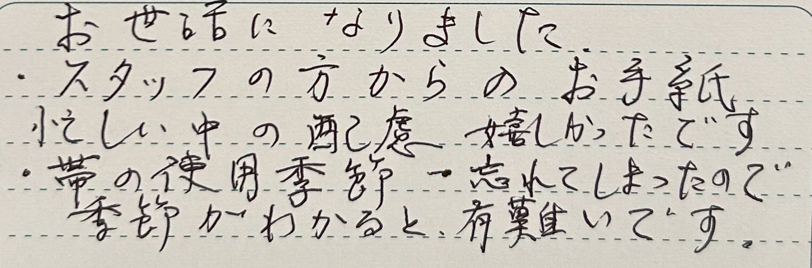 お世話になりました.
・スタッフの方からのお手紙
忙しい中の配慮 嬉しかったです
・帯の使用季節→忘れてしまったので
季節がわかると、有難いです。